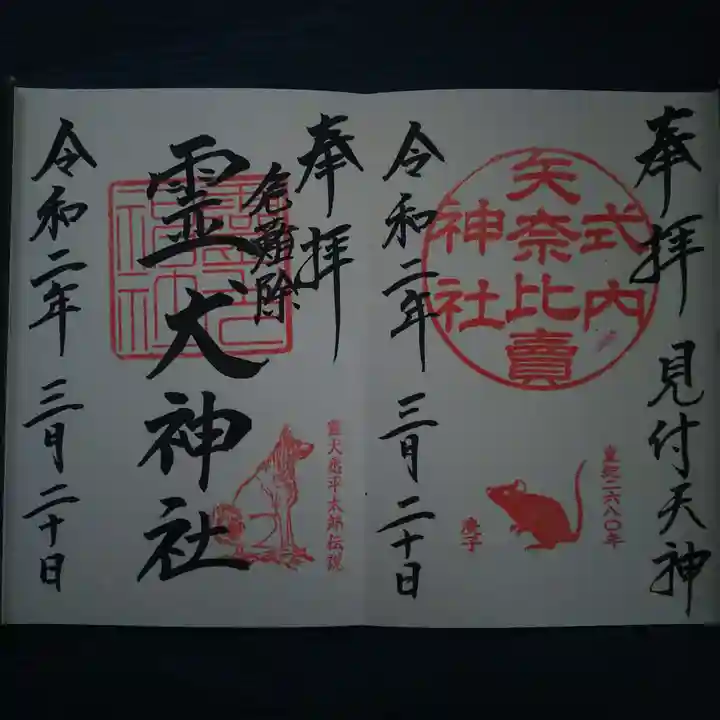 奉拝 見付天神
式内
矢奈比賣
神社
皇紀二六八〇年
庚子
令和二年 三月二十日
奉拝
危難除
霊犬神社
霊犬悉平太郎伝説
令和二年 三月二十日